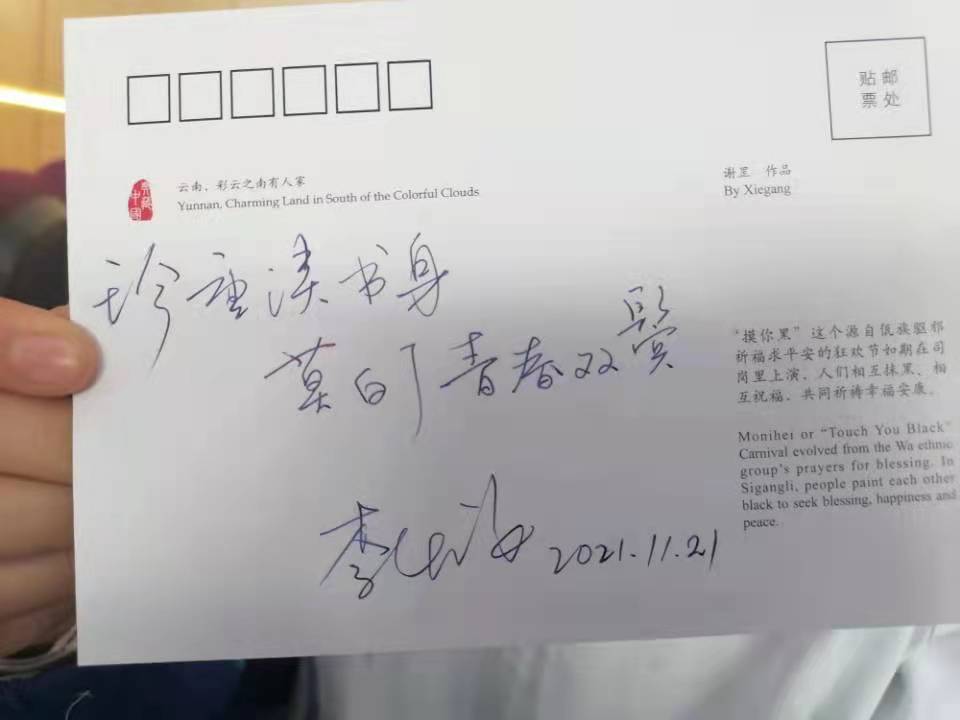 贴邮
票处
中國
云南，彩云之南有人家
Yunnan, Charming Land in South of the Colorful Clouds
谢罡 作品
By Xiegang
珍重读书身
莫白了青春双鬓
李
2021.11.21
“摸你黑”这个源自佤族驱邪
祈福求平安的狂欢节如期在司
岗里上演，人们相互抹黑、相
互祝福，共同祈祷幸福安康。
Monihei or “Touch You Black”
Carnival evolved from the Wa ethnic
group's prayers for blessing. In
Sigangli, people paint each other
black to seek blessing, happiness and
peace.